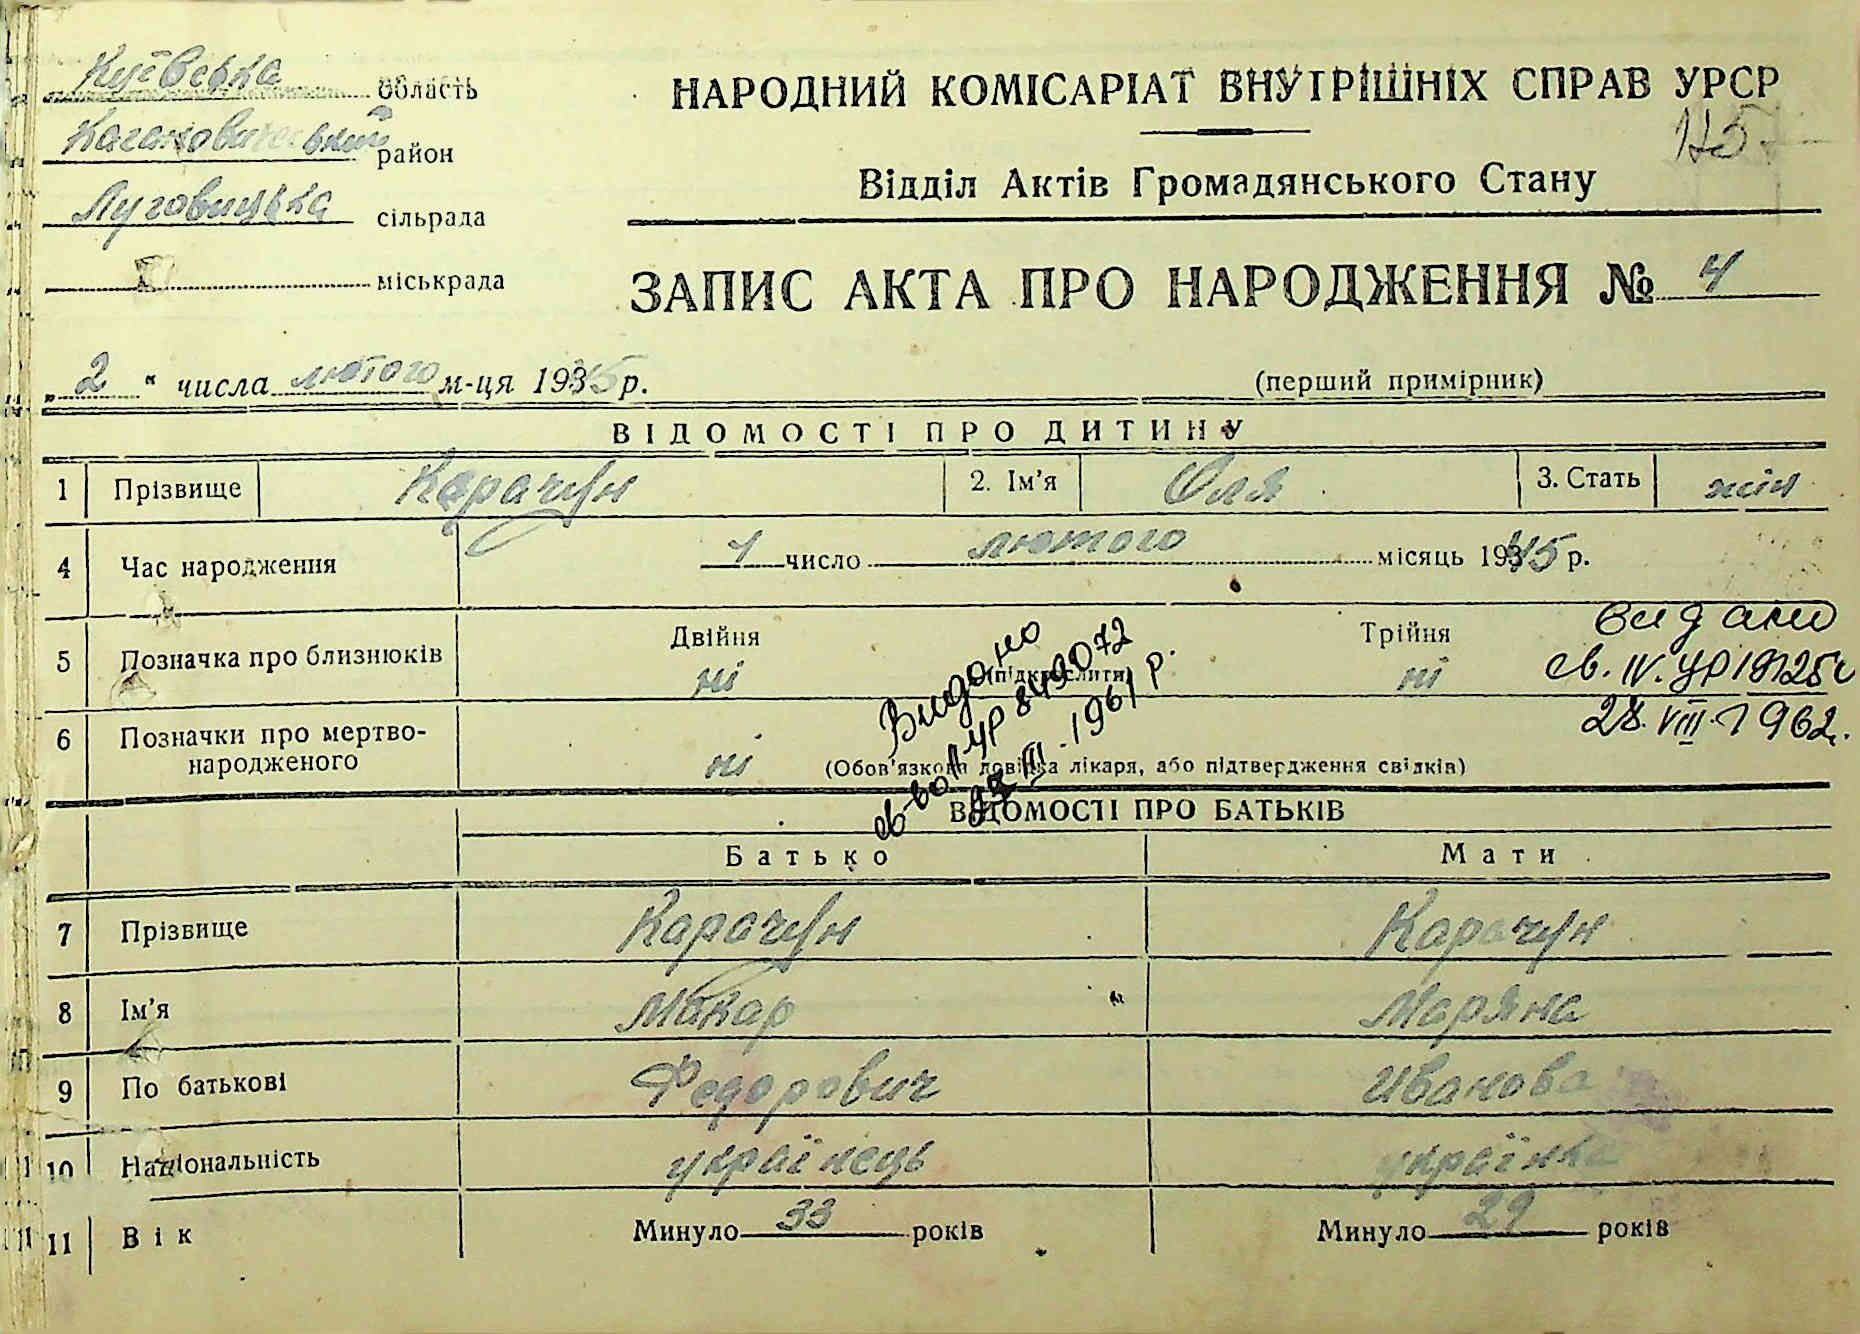 Київська область
Кагановичський район
Луговицька сільрада
міськрада
НАРОДНИЙ КОМІСАРІАТ ВНУТРІШНІХ СПРАВ УРСР
115
Відділ Актів Громадянського Стану
ЗАПИС АКТА ПРО НАРОДЖЕННЯ № 4
„ 2 “ числа лютого м-ця 1945 р.
(перший примірник)
ВІДОМОСТІ ПРО ДИТИНУ
1 Прізвище Карачун 2. Ім’я Оля 3. Стать жін
4 Час народження 1 число лютого місяць 1945 р.
5 Позначка про близнюків Двійня ні (підкреслити) Трійня ні
Видано
св-во II УР 849072
III. 1961 р.
видано
св. IV. УР
28. VIII. 1962.
6 Позначки про мертво-
народженого ні (Обов’язкова довідка лікаря, або підтвердження свідків)
ВІДОМОСТІ ПРО БАТЬКІВ
Батько Мати
7 Прізвище Карачун Карачун
8 Ім’я Макар Мар'яна
9 По батькові Федорович Иванова
10 Національність українець українка
11 Вік Минуло 33 років Минуло 29 років